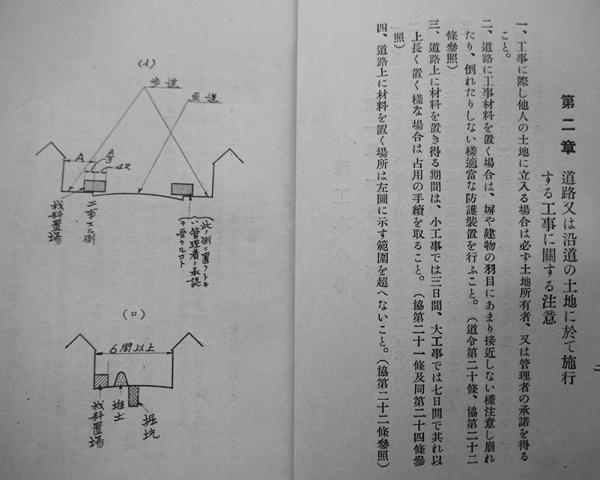 第二章 道路又は沿道の土地に於て施行
する工事に關する注意
一、工事に際し他人の土地に立入る場合は必ず土地所有者、又は管理者の承諾を得る
こと。
二、道路に工事材料を置く場合は、塀や建物の羽目にあまり接近しない樣注意し崩れ
たり、倒れたりしない樣適當な防護裝置を行ふこと。（道令第二十條、協第二十二
條參照）
三、道路上に材料を置き得る期間は、小工事では三日間、大工事では七日間で其れ以
上長く置く樣な場合は占用の手續を取ること。（協第二十一條及同第二十四條參
照）
四、道路上に材料を置く場所は左圖に示す範圍を超へないこと。（協第二十二條參照）
二
(イ)
步道
車道
A
材料置場
工事スル側
此ノ側ニ置クトキ
ハ管理者ノ承認
ヲ受クルコト
(ロ)
6間以上
材料置場
堆土
掘坑